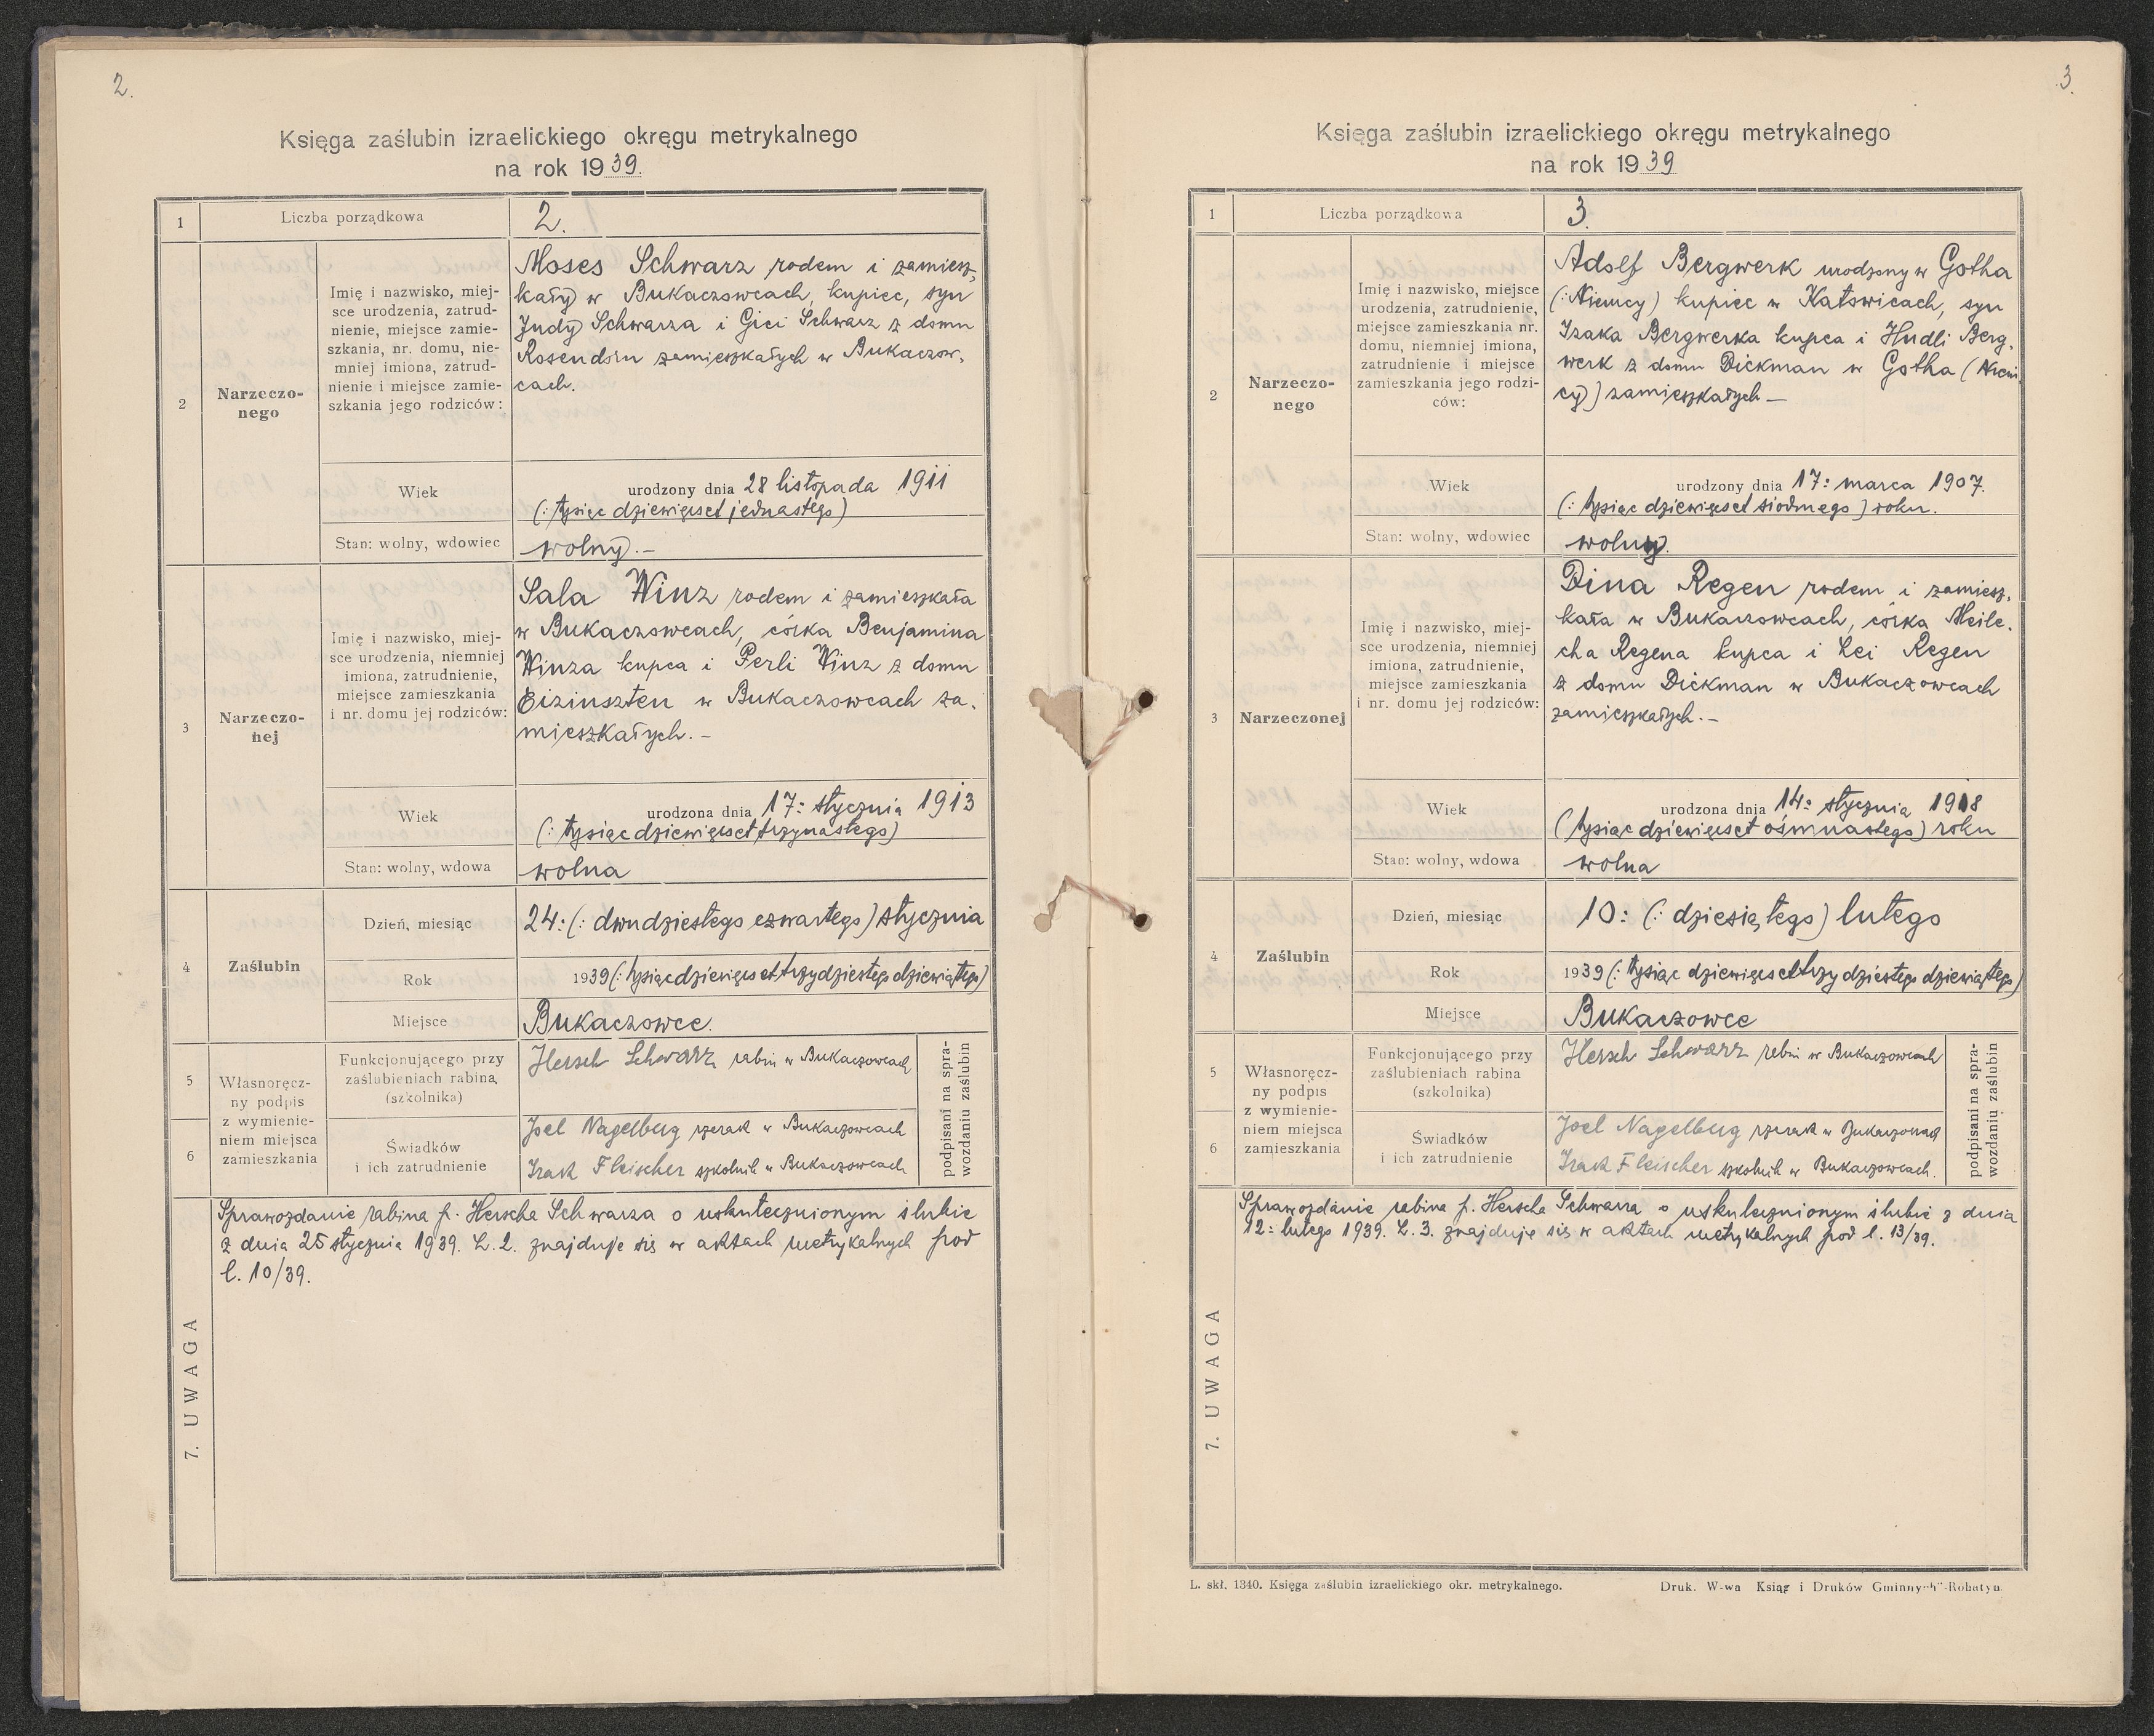 2.
Księga zaślubin izraelickiego okręgu metrykalnego
na rok 1939.
1
Liczba porządkowa
2.
2
Narzeczo-
nego
Imię i nazwisko, miej-
sce urodzenia, zatrud-
nienie, miejsce zamie-
szkania, nr. domu, nie-
mniej imiona, zatrud-
nienie i miejsce zamie-
szkania jego rodziców:
Moses Schwarz rodem i zamiesz-
kały w Bukaczowcach, kupiec, syn
Judy Schwarza i Gici Schwarz z domu
Rosendorn zamieszkałych w Bukaczow-
cach.
Wiek
urodzony dnia 28 listopada 1911
(: tysiąc dziewięset jednastego)
Stan: wolny, wdowiec
wolny.—
3
Narzeczo-
nej
Imię i nazwisko, miej-
sce urodzenia, niemniej
imiona, zatrudnienie,
miejsce zamieszkania
i nr. domu jej rodziców:
Sala Winz rodem i zamieszkała
w Bukaczowcach, córka Benjamina
Winza kupca i Perli Winz z domu
Eizinszten w Bukaczowcach za-
mieszkałych.—
Wiek
urodzona dnia 17: stycznia 1913
(: tysiąc dziewięset trzynastego)
Stan: wolny, wdowa
wolna
4
Zaślubin
Dzień, miesiąc
24: (: dwudziestego czwartego) stycznia
Rok
1939 (: tysiąc dziewięset trzydziestego dziewiątego)
Miejsce
Bukaczowce.
5
6
Własnoręcz-
ny podpis
z wymienie-
niem miejsca
zamieszkania
Funkcjonującego przy
zaślubieniach rabina,
(szkolnika)
Hersch Schwarz rabin w Bukaczowcach
Świadków
i ich zatrudnienie
Joel Nagelberg rzezak w Bukaczowcach
Izak Fleischer szkolnik w Bukaczowcach
podpisani na spra-
wozdaniu zaślubin
7. UWAGA
Sprawozdanie rabina p. Herscha Schwarza o uskutecznionym ślubie
z dnia 25 stycznia 1939. L. 2. znajduje się w aktach metrykalnych pod
l. 10/39.
3.
Księga zaślubin izraelickiego okręgu metrykalnego
na rok 1939
1
Liczba porządkowa
3.
2
Narzeczo-
nego
Imię i nazwisko, miejsce
urodzenia, zatrudnienie,
miejsce zamieszkania nr.
domu, niemniej imiona,
zatrudnienie i miejsce
zamieszkania jego rodzi-
ców:
Adolf Bergwerk urodzony w Gotha
(: Niemcy) kupiec w Katowicach, syn
Izaka Bergwerka kupca i Hudli Berg-
werk z domu Dickman w Gotha (Niem-
cy) zamieszkałych —
Wiek
urodzony dnia 17: marca 1907.
(: tysiąc dziewięset siódmego) roku.
Stan: wolny, wdowiec
wolny.
3
Narzeczonej
Imię i nazwisko, miej-
sce urodzenia, niemniej
imiona, zatrudnienie,
miejsce zamieszkania
i nr. domu jej rodziców:
Dina Regen rodem i zamiesz-
kała w Bukaczowcach, córka Meile-
cha Regena kupca i Lei Regen
z domu Dickman w Bukaczowcach
zamieszkałych.—
Wiek
urodzona dnia 14: stycznia 1918
(tysiąc dziewięset ośmnastego) roku
Stan: wolny, wdowa
wolna
4
Zaślubin
Dzień, miesiąc
10: (: dziesiątego) lutego
Rok
1939 (: tysiąc dziewięset trzydziestego dziewiątego)
Miejsce
Bukaczowce
5
6
Własnoręcz-
ny podpis
z wymienie-
niem miejsca
zamieszkania
Funkcjonującego przy
zaślubieniach rabina
(szkolnika)
Hersch Schwarz rabin w Bukaczowcach
Świadków
i ich zatrudnienie
Joel Nagelberg rzezak w Bukaczowcach
Izak Fleischer szkolnik w Bukaczowcach.
podpisani na spra-
wozdaniu zaślubin
7. UWAGA
Sprawozdanie rabina p. Herscha Schwarza o uskutecznionym ślubie z dnia
12: lutego 1939. L. 3. znajduje się w aktach metrykalnych pod l. 13/39.
L. skł. 1340. Księga zaślubin izraelickiego okr. metrykalnego.
Druk. W-wa Ksiąg i Druków Gminnych"-Rohatyn.